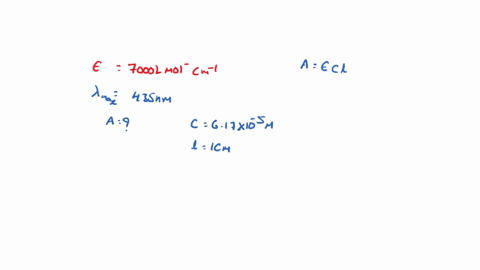 ϵ = 7000 L mol⁻ cm⁻¹
A = ϵ C l
λmax = 435nm
A = ?
C = 6.17×10⁻⁵ M
l = 1cm